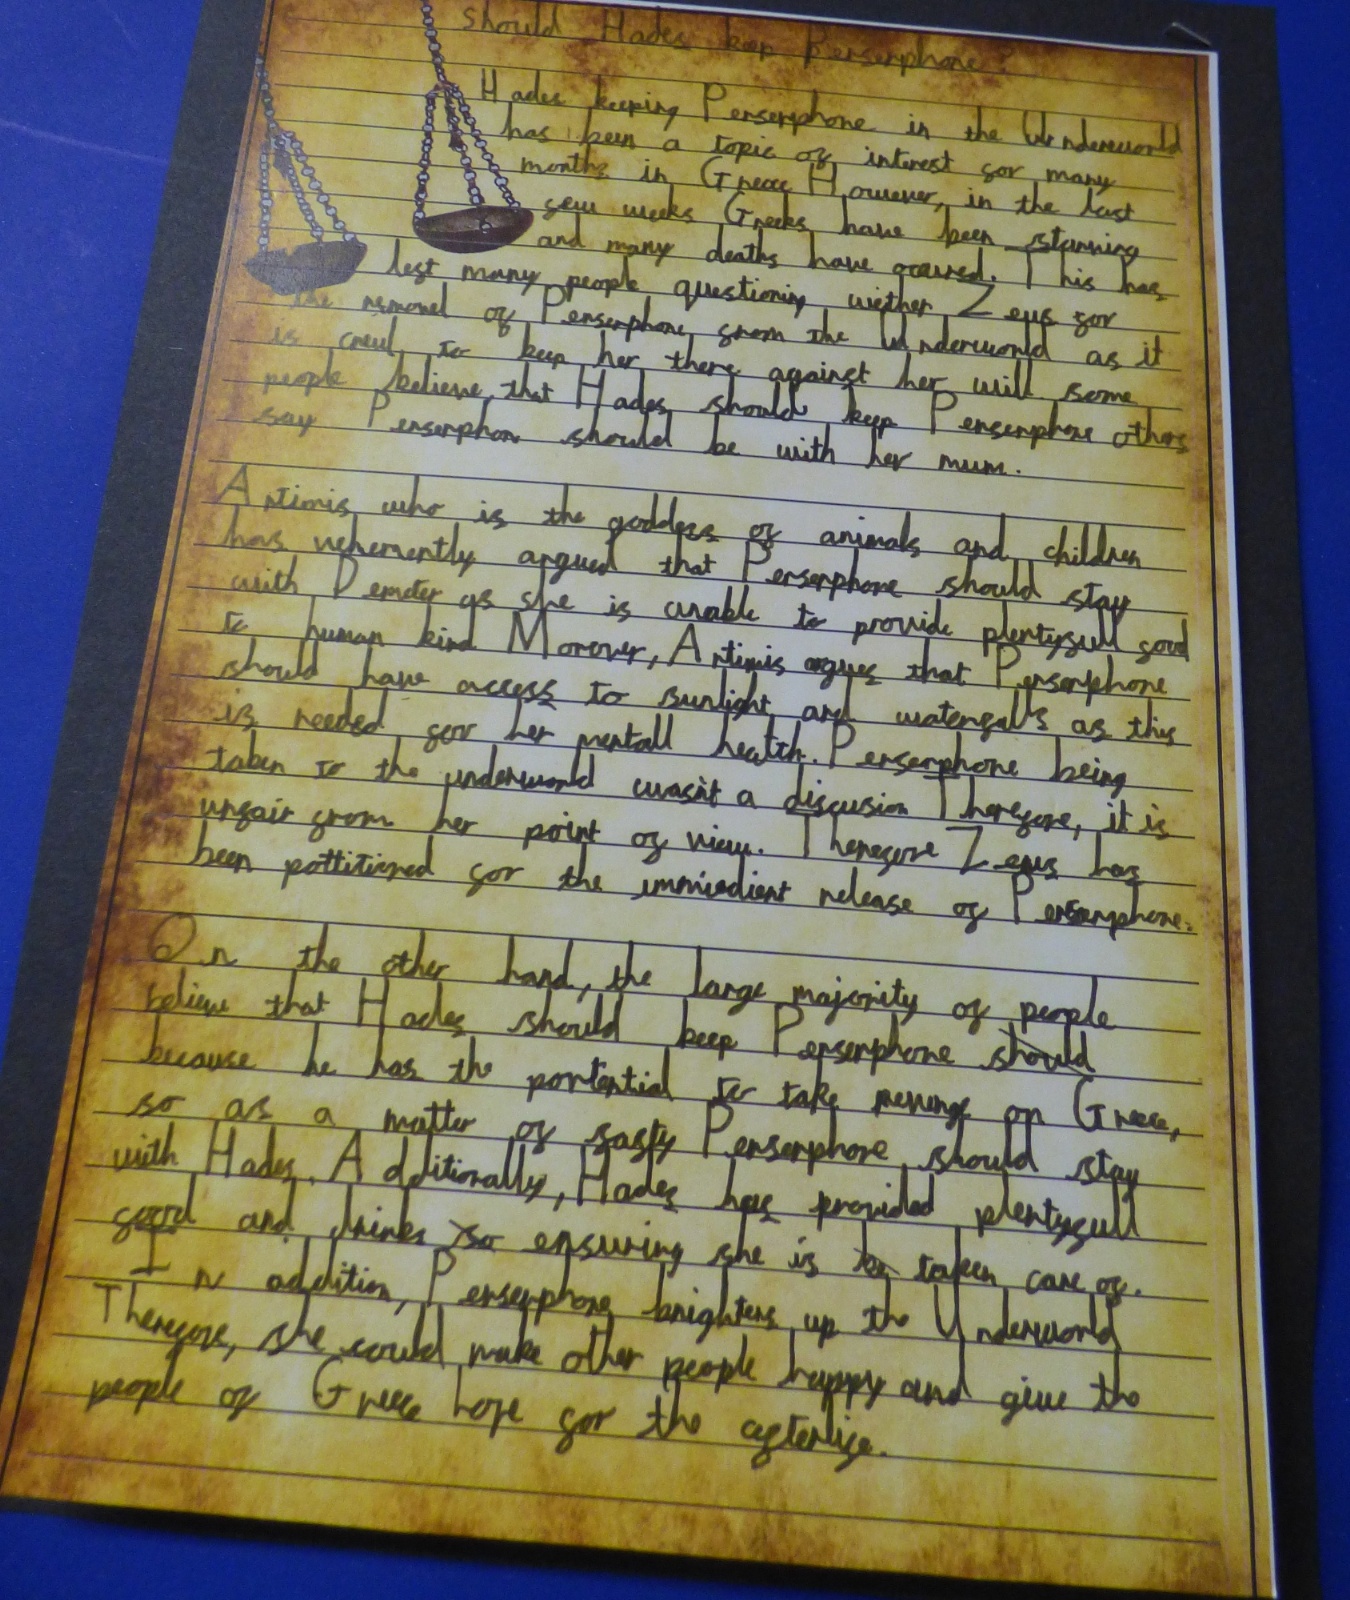 should Hades keep Perserphone?
Hades keeping Perserphone in the Underworld
has been a topic of interest for many
months in Greece However, in the last
few weeks Greeks have been starving
and many deaths have occured. This has
left many people questioning wether Zeus for
the removel of Perserphone from the Underworld as it
is cruel to keep her there against her will some
people believe that Hades should keep Perserphone others
say Perserphone should be with her mum.
Artimis who is the goddess of animals and children
has vehemently argued that Perserphone should stay
with Demder as she is unable to provide plentyfull food
to human kind Morover, Artimis argues that Perserphone
should have access to sunlight and waterfalls as this
is needed for her mentall health. Perserphone being
taken to the underworld wasn't a discusion Therefore, it is
unfair from her point of view. Therefore Zeus has
been pottitioned for the immiedient release of Perserphone.
On the other hand, the large majority of people
believe that Hades should keep Perserphone should
because he has the portential to take revenge on Greece,
so as a matter of safty Perserphone should stay
with Hades. Additionally, Hades has provided plentyfull
food and drinks so ensuring she is be taken care of.
In addition, Perserphone brightens up the Underworld
Therefore, she could make other people happy and give the
people of Greece hope for the afterlife.